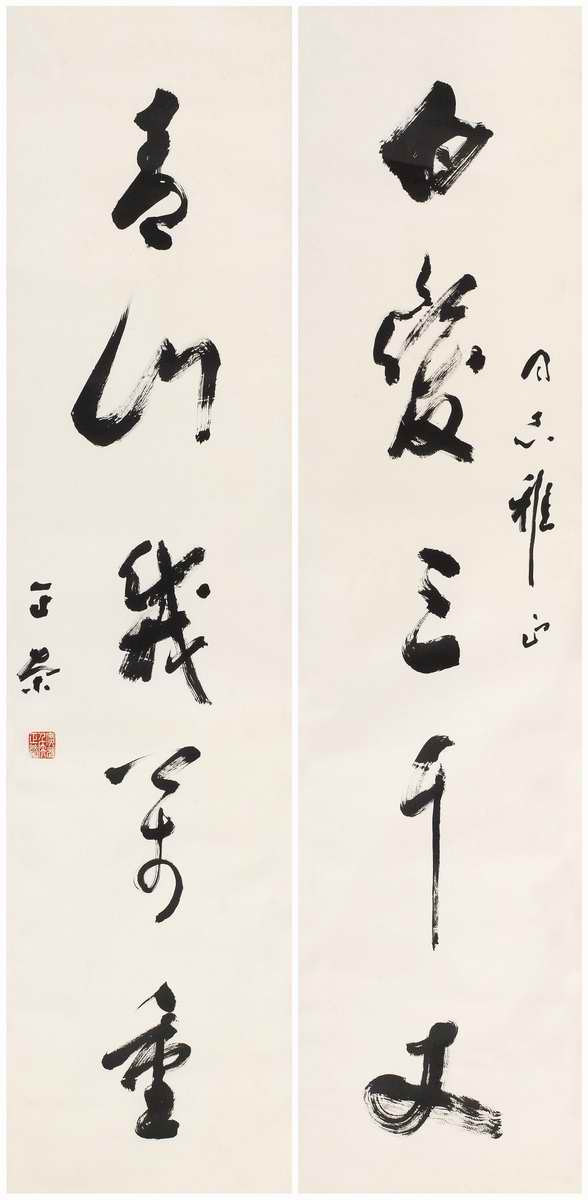 白髮三千丈
同志雅正
青山幾萬重